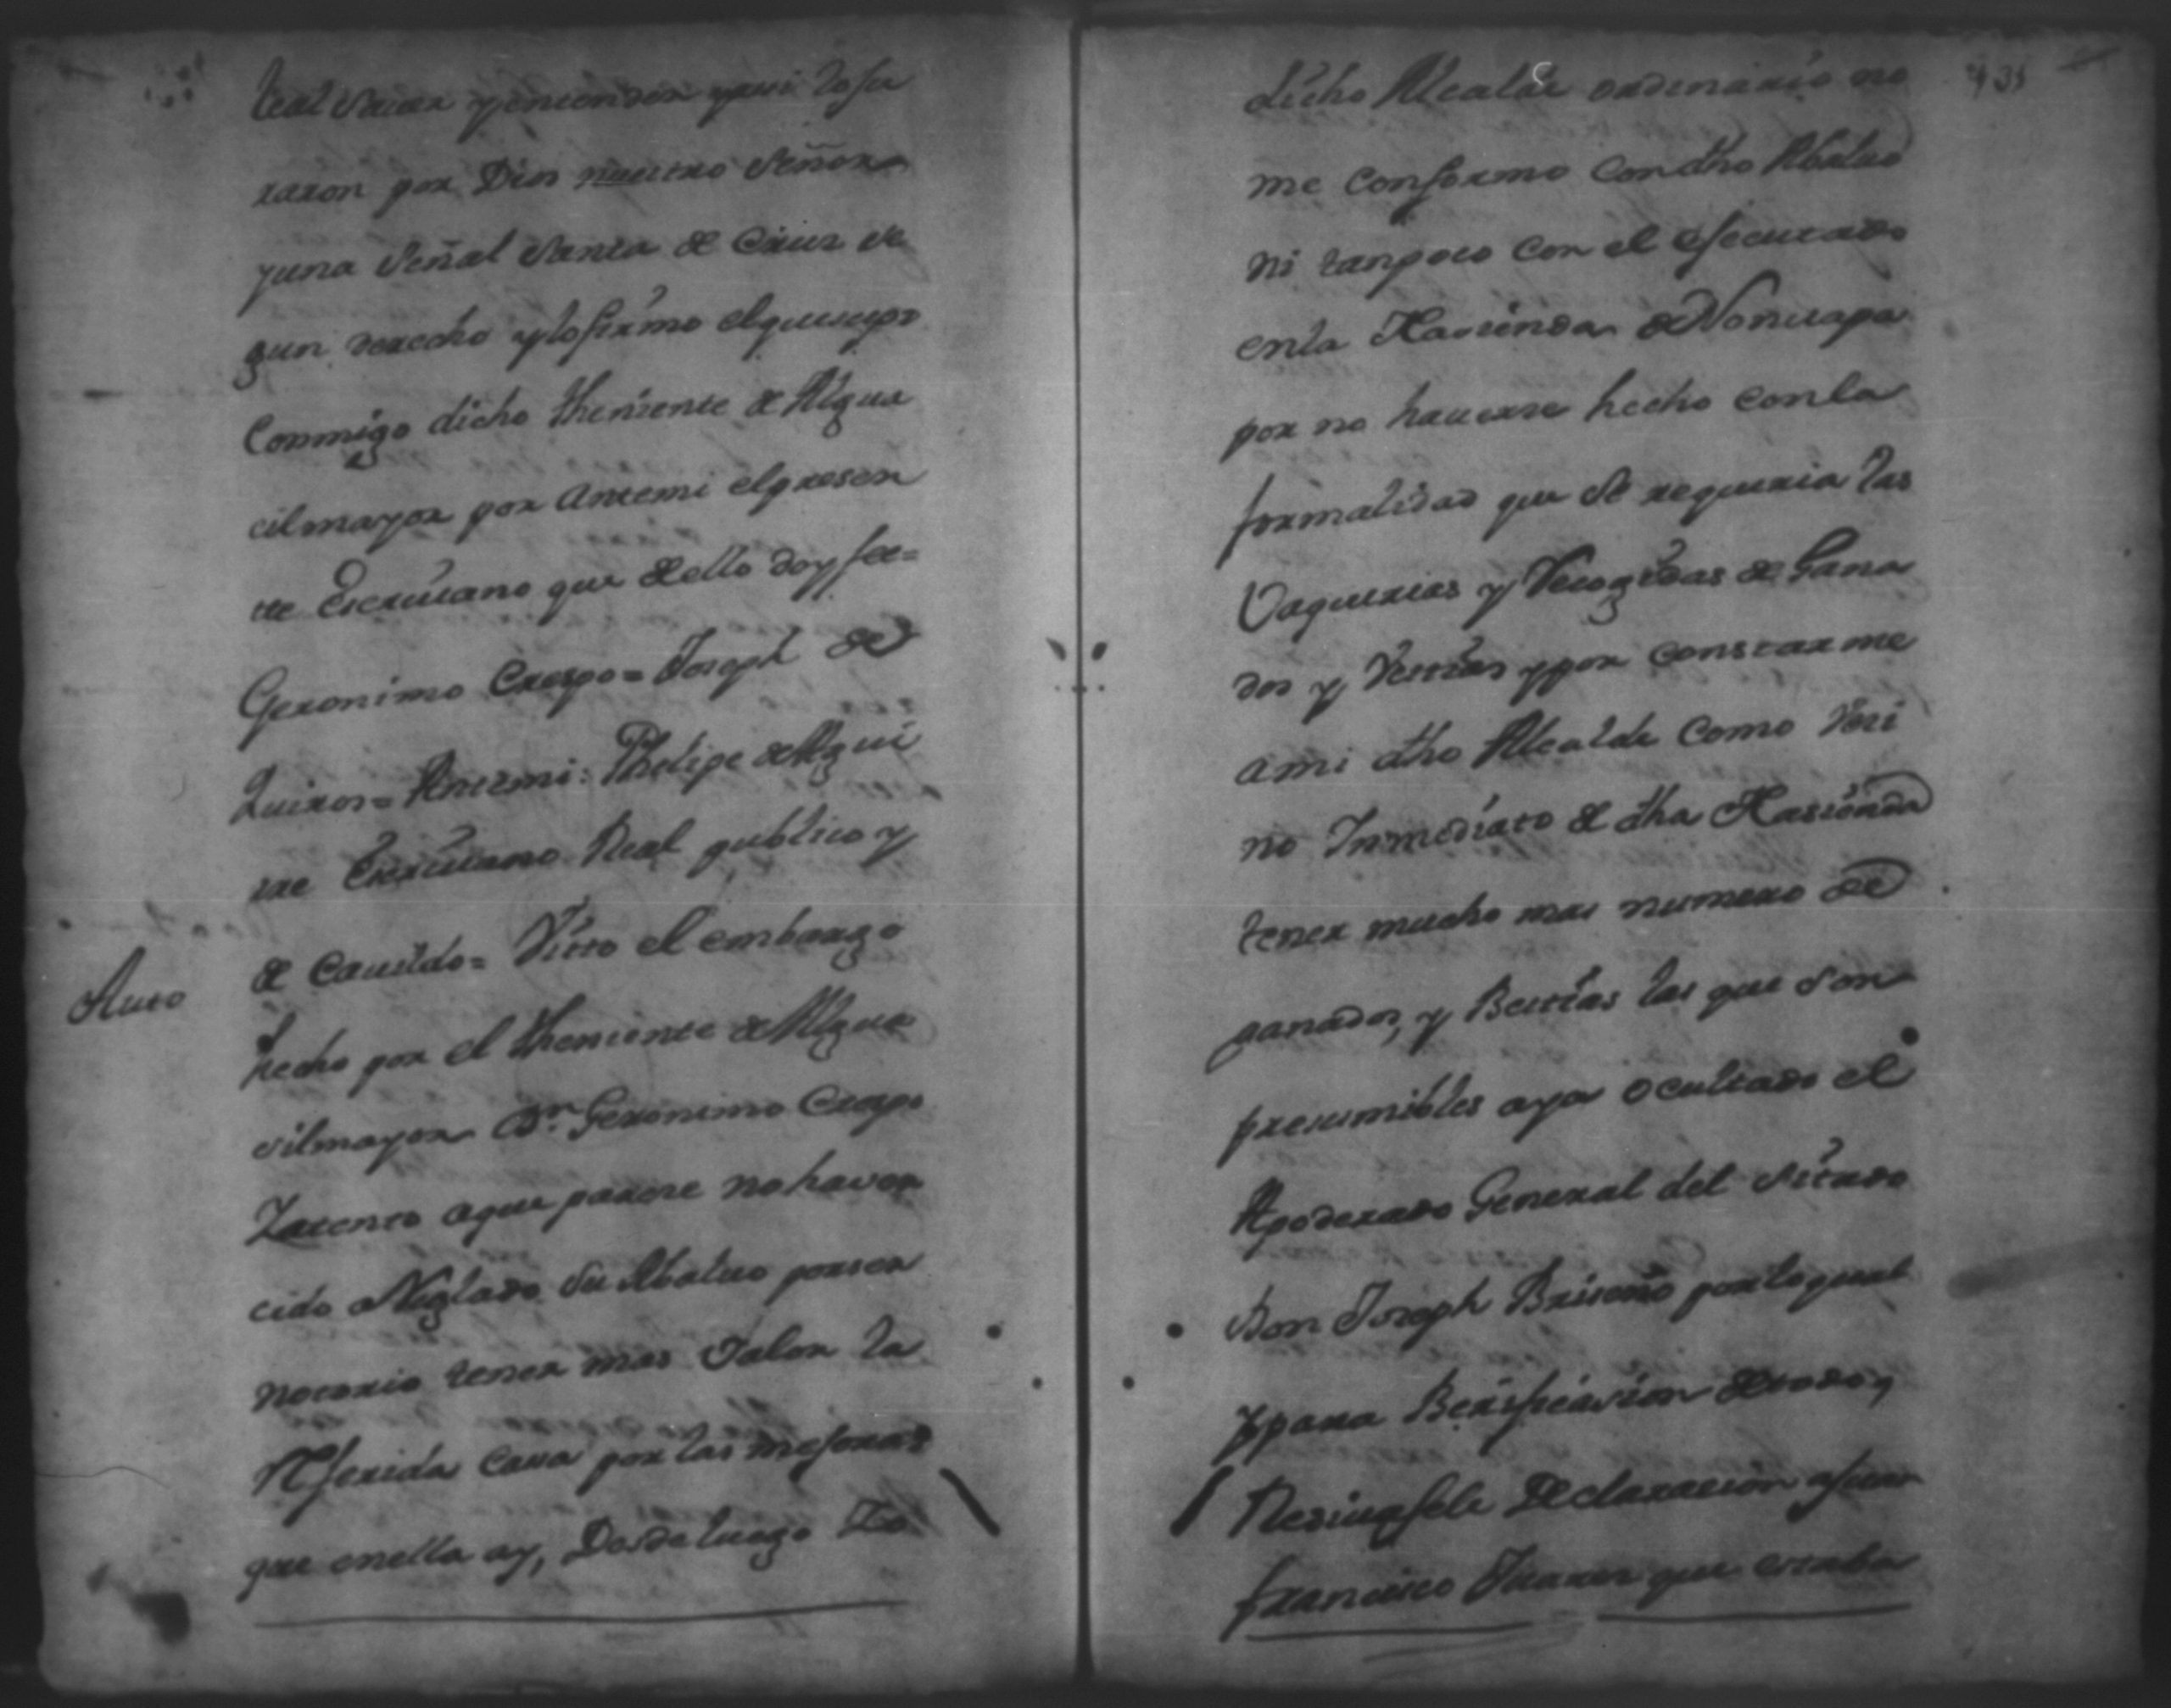 leal saver y entender y assi lo ju
raron por Dios nuestro Señor
y una Señal Santa de Cruz se
gun derecho y lo firmo el que supo
Conmigo dicho theniente de Algua
cil mayor por antemi el presen
te Escriuano que de ello doy fee=
Geronimo Crespo= Joseph de
Quiros= Antemi: Phelipe de Agui
rre Escriuano Real publico y
Auto
de Cauildo= Visto el embargo
hecho por el theniente de Algua
sil mayor Dn Geronimo Crespo
Zatento a que parese no haver
cido Reglado Su Abaluo por ser
notorio tener mas Valor la
Referida Casa por las mejoras
que en ella ay, Desde luego Yo
431
dicho Alcalde ordinario no
me conformo con dho Abaluo
ni tanpoco con el ejecutado
en la Hasienda de
por no hauerse hecho con la
formalidad que se requeria las
Vaquerias y Recogidas de Gana
dos y Vestias y por constarme
a mi dho Alcalde como Vesi
no Inmediato de dha Hasienda
tener mucho mas numero de
ganados, y Bestias las que son
presumibles aya ocultado el
Apoderado General del Sitado
Don Joseph Briseño por lo qual
Y para Berificasion de todo,
Resiuasele Declarasion a Juan
francisco Suares que estaba